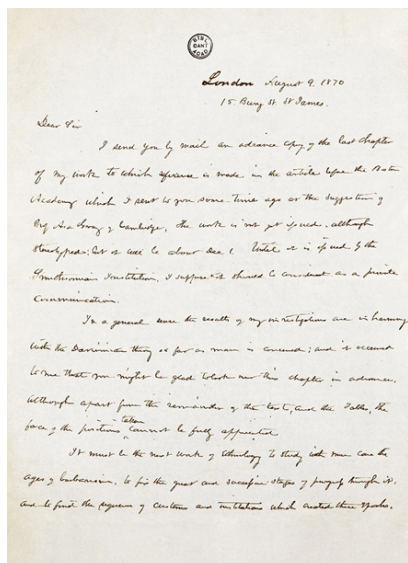 BIBL.
CANT.
ACAD
London August 9. 1870
15 Bury St. St James.
Dear Sir
I send you by mail an advance copy of the last chapter
of my work to which reference is made in the article upon the Boston
Academy which I sent to you some time ago at the suggestion of
Prof Asa Gray of Cambridge. The work is not yet issued, although
stereotyped; but it will be about Dec 1. Until it is issued by the
Smithsonian Institution, I suppose it should be considered as a private
Communication.
In a general sense the results of my investigations are in harmony
with the Darwinian theory so far as man is concerned; and it occurred
to me that you might be glad to look over this chapter in advance.
Although apart from the remainder of the text, and the Tables, the
force of the positions taken cannot be fully appreciated
It must be the next work of Ethnology to study with more care the
ages of barbarism, to fix the great and successive stages of progress through it,
and to find the sequence of customs and institutions which created these epochs.